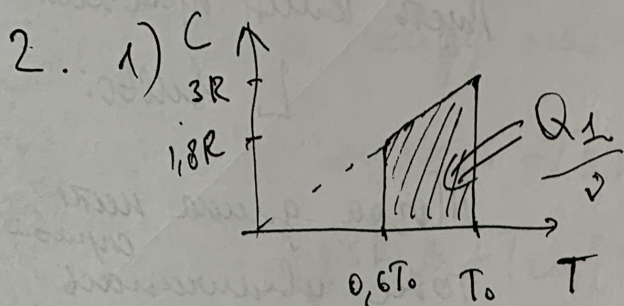 2. 1) C
3R
1,8R
Q1
ν
0,6T₀ T₀ T